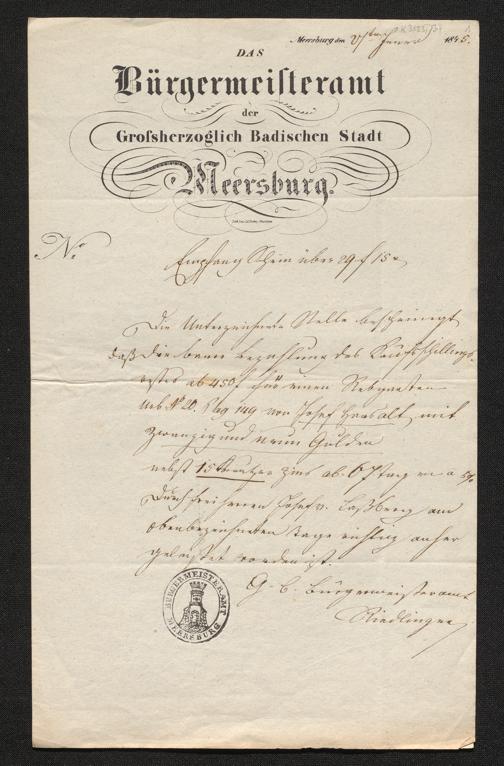 Meersburg den 184
DAS
Bürgermeisteramt
der
Großherzoglich Badischen Stadt
Meersburg.
N°
Empfang Schein über 29 f 15 x
Die Unterzeichnete Stelle bescheinigt
daß die baare bezahlung des Kaufschillings
ab 450 f für einen Rebgarten
N° 20. 149 von Josef alt, mit
zwanzig und neun Gulden
nebst 15 Kreutzer Zins ab 67 Tag
Durch freiherren Josef v. Laßberg am
obenbezeichneten Tage richtig anher
geleistet worden ist.
G. B. Bürgermeisteramt
Riedlinger
BÜRGERMEISTERAMT
MEERSBURG